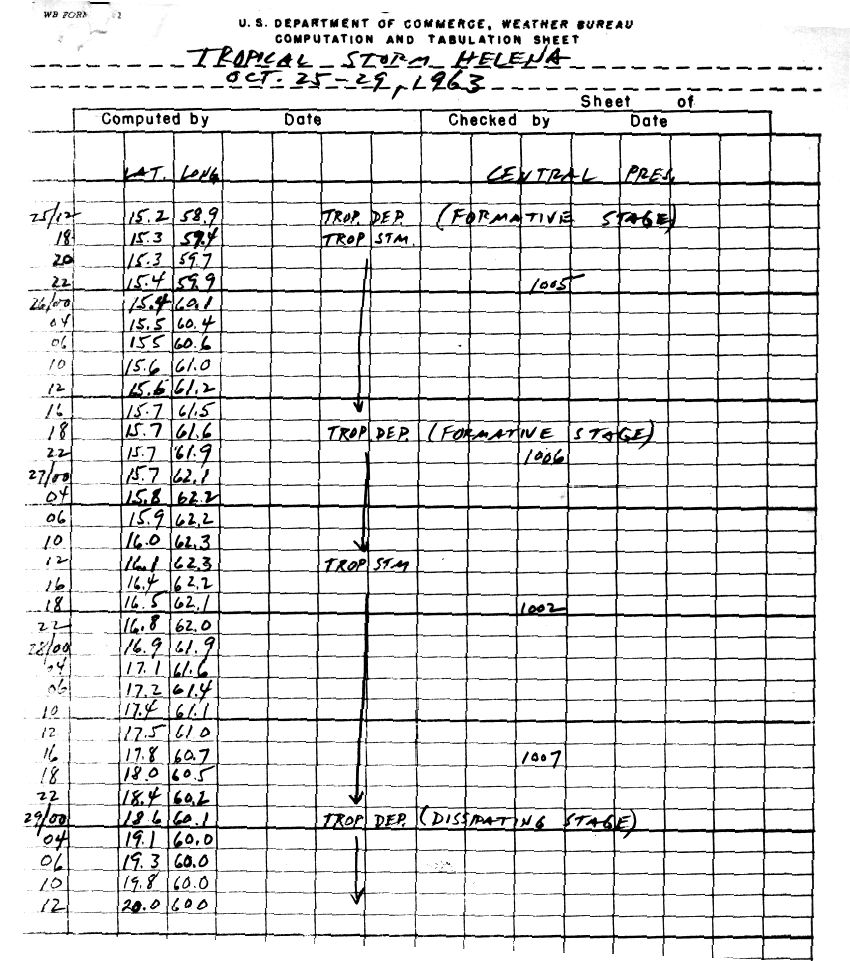 WB FORM 2
U. S. DEPARTMENT OF COMMERCE, WEATHER BUREAU
COMPUTATION AND TABULATION SHEET
TROPICAL STORM HELENA
OCT. 25-29, 1963
Sheet of
Computed by Date Checked by Date
LAT. LONG CENTRAL PRES.
25/12 15.2 58.9 TROP. DEP. (FORMATIVE STAGE)
18 15.3 59.4 TROP STM.
20 15.3 59.7
22 15.4 59.9 1005
26/00 15.4 60.1
04 15.5 60.4
06 155 60.6
10 15.6 61.0
12 15.6 61.2
16 15.7 61.5
18 15.7 61.6 TROP DEP. (FORMATIVE STAGE)
22 15.7 61.9 1006
27/00 15.7 62.1
04 15.8 62.2
06 15.9 62.2
10 16.0 62.3
12 16.1 62.3 TROP STM
16 16.4 62.2
18 16.5 62.1 1002
22 16.8 62.0
28/00 16.9 61.9
04 17.1 61.6
06 17.2 61.4
10 17.4 61.1
12 17.5 61.0
16 17.8 60.7 1007
18 18.0 60.5
22 18.4 60.2
29/00 18.6 60.1 TROP DEP. (DISSIPATING STAGE)
04 19.1 60.0
06 19.3 60.0
10 19.8 60.0
12 20.0 60.0